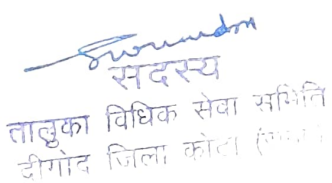 सदस्य
तालुका विधिक सेवा समिति
दीगोद जिला कोटा